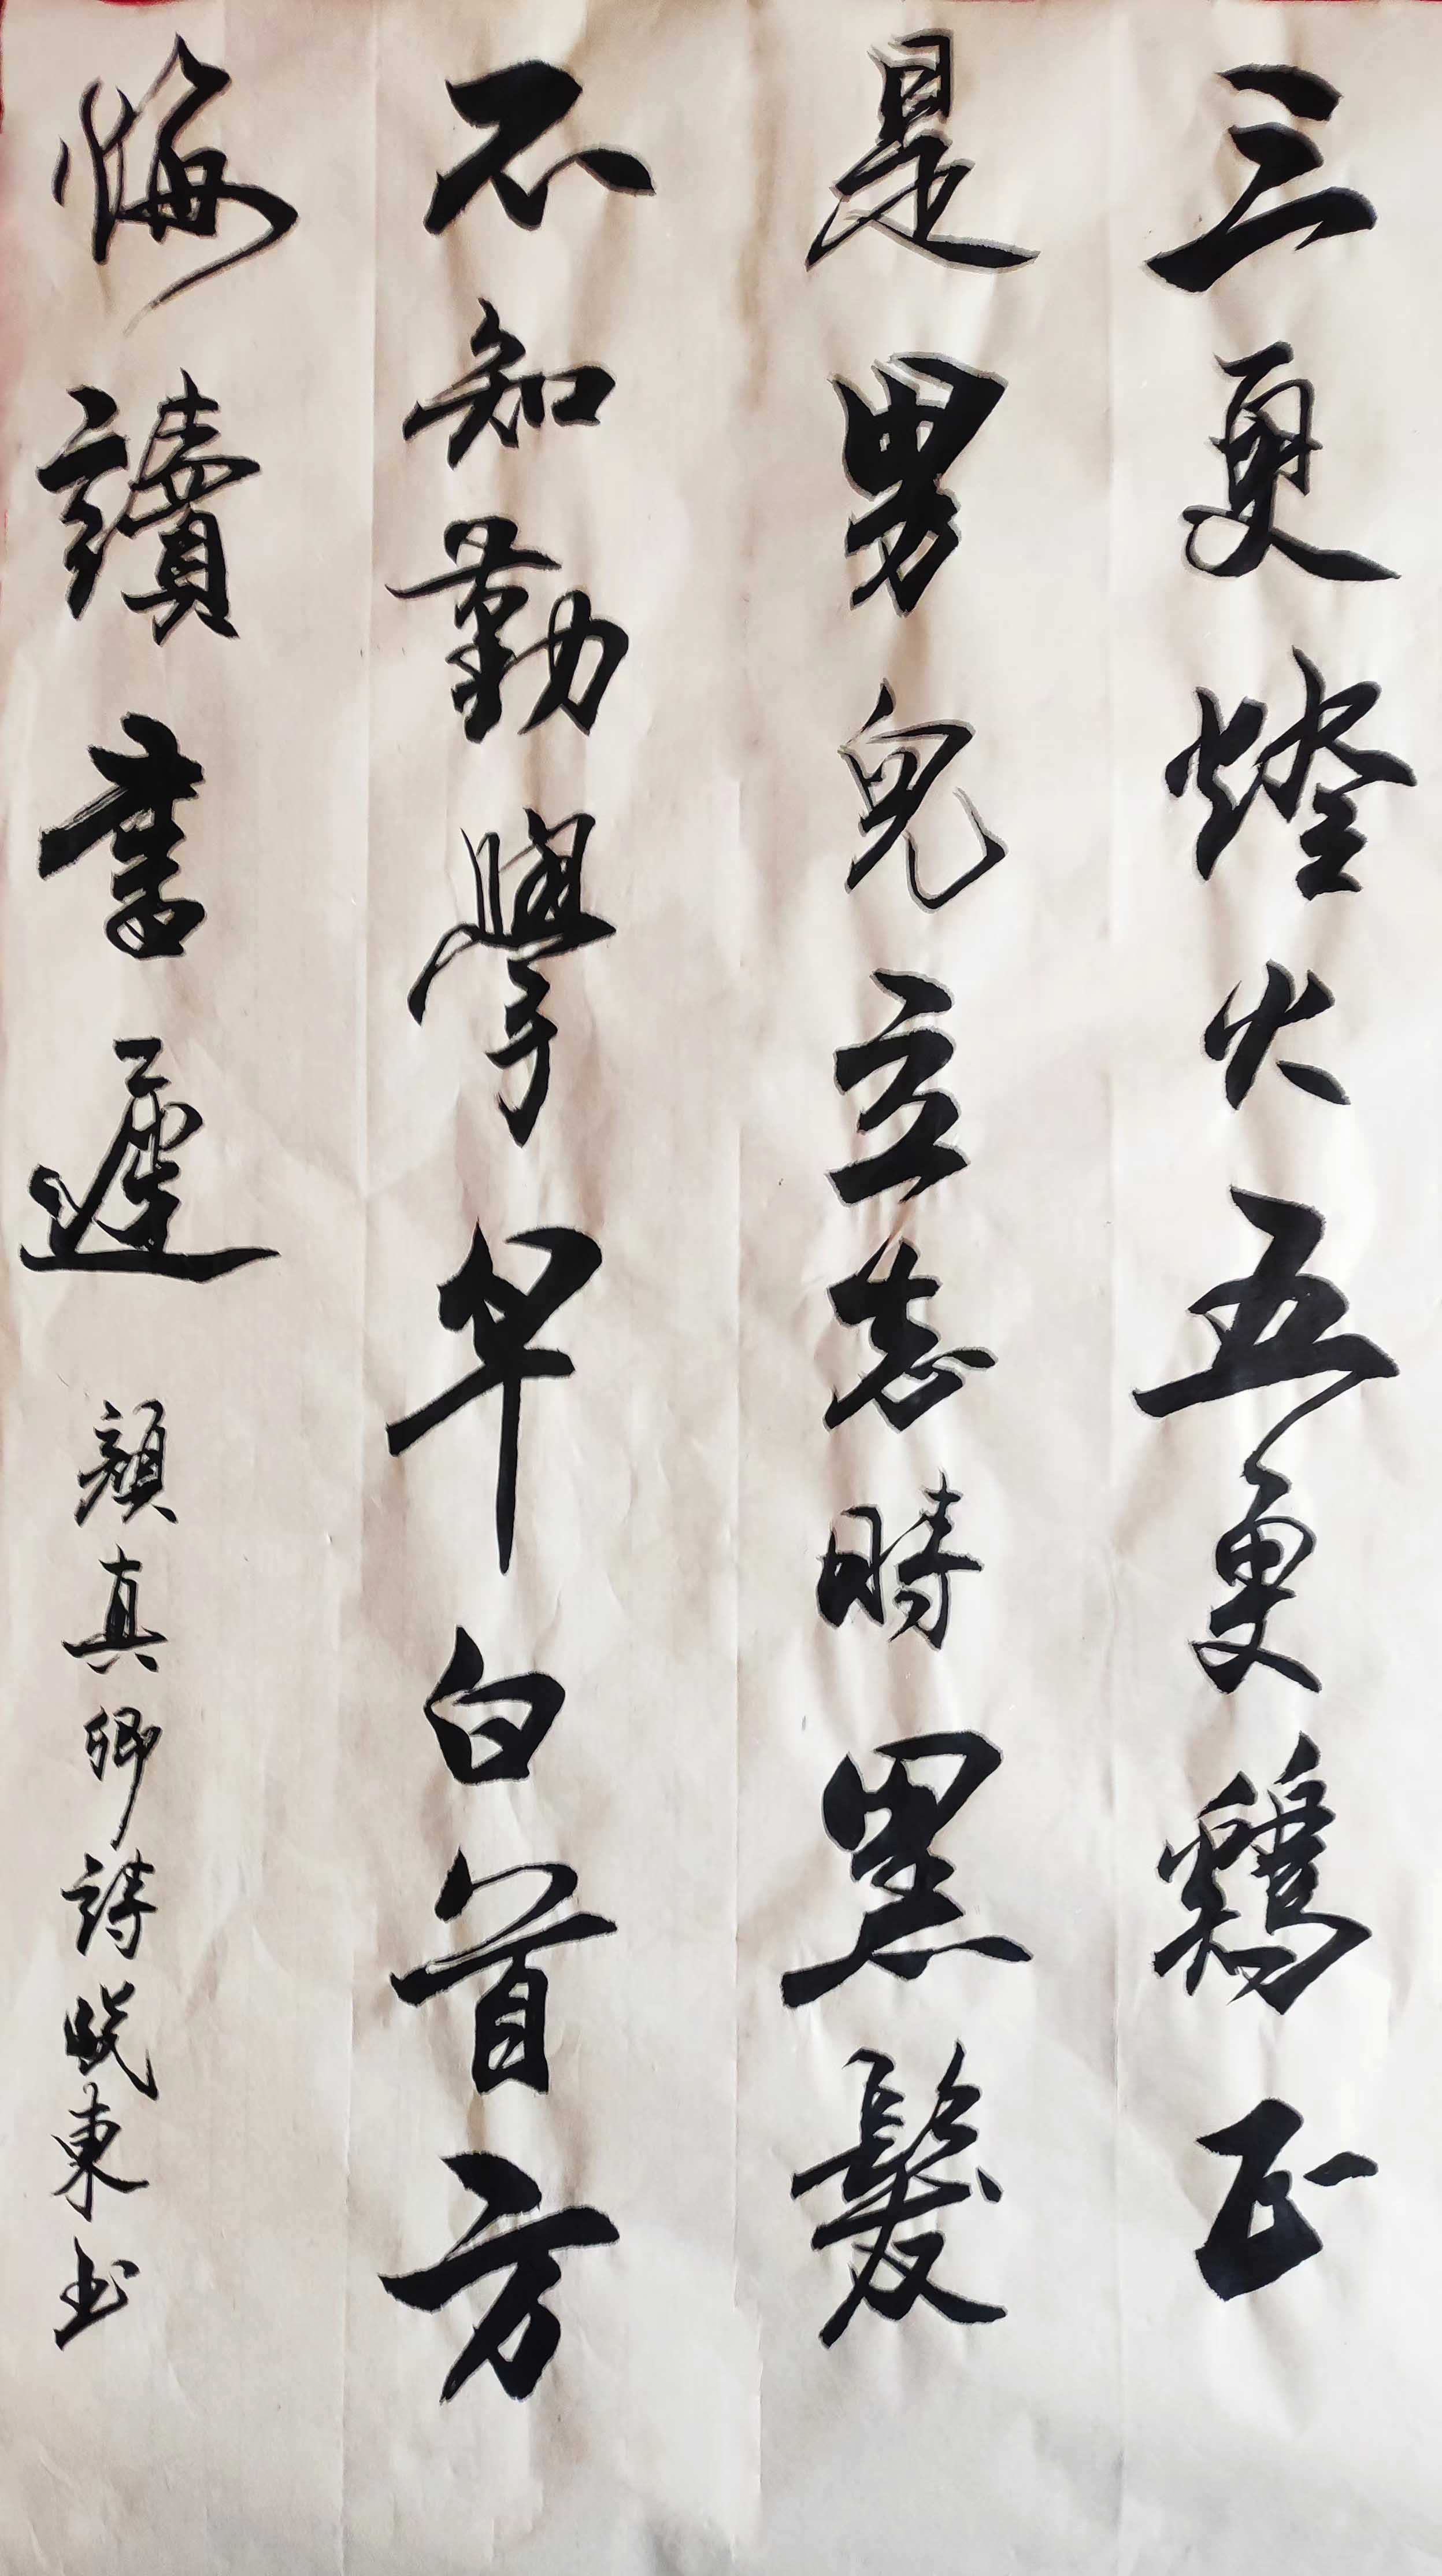 三更燈火五更鷄正
是男兒立志時黑髮
不知勤學早白首方
悔讀書遲 顔真卿詩 曉東书